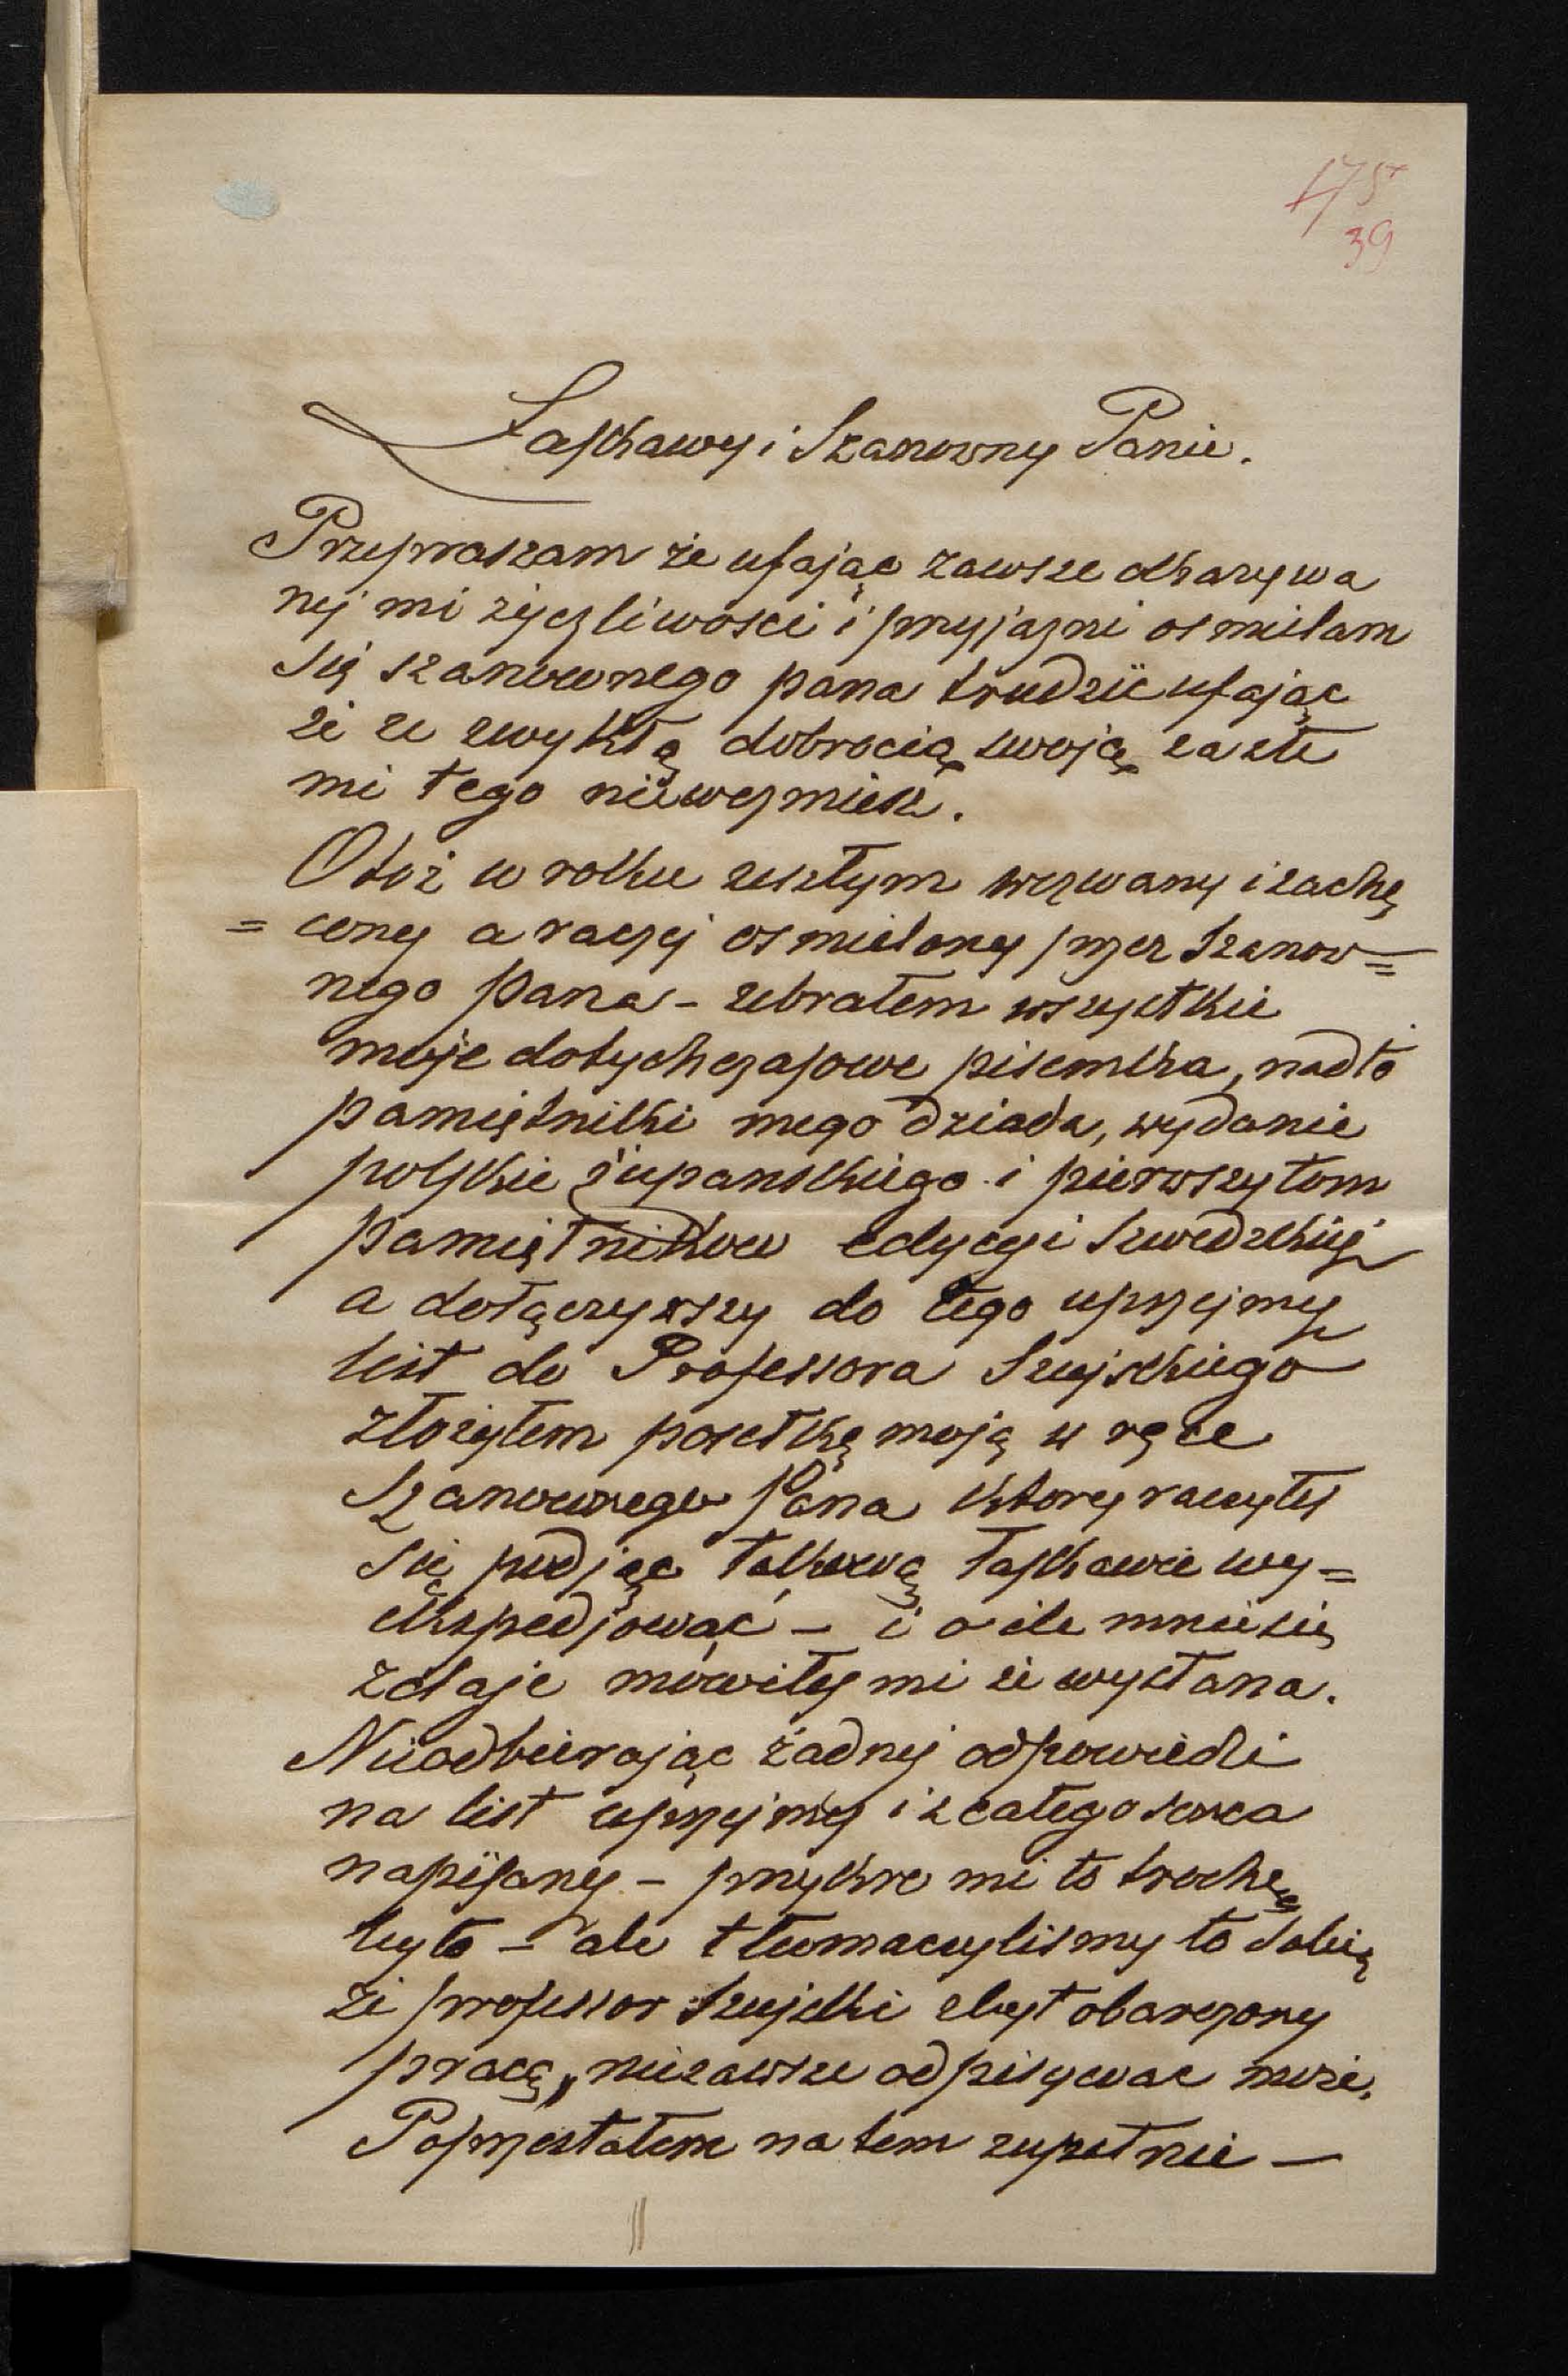 175
39
Łaskawy i Szanowny Panie.
Przepraszam że ufając zawsze okazywa
nej mi życzliwosci i przyjazni osmielam
się szanownego pana trudzić ufając
że ze zwykłą dobrocią swoją za złe
mi tego niewezmiesz.
Otoż w roku zeszłym wezwany i zachę
= cony a raczej osmielony przez Szanow=
nego Pana – zebrałem wszystkie
moje dotychczasowe pisemka, nadto
pamiętniki mego dziada, wydanie
polskie żupanskiego i pierwszy tom
pamiętnikow edycyi Szwedzkiej
a dołączywszy do tego uprzejmy
list do Professora Szujskiego
złożyłem posełkę moją w ręce
Szanownego Pana ktory raczyłes
się podjąc takową łaskawie wy=
ekspedjować – i o ile mnie się
zdaje mówiłeś mi że wysłana.
Nieodbierając żadnej odpowiedzi
na list uprzejmy i z całego serca
napisany – przykro mi to trochę
było – ale tłumaczylismy to sobie
że professor Szujski zbyt obarczony
pracą, niezawsze odpisywac może.
Poprzestałem na tem zupełnie –